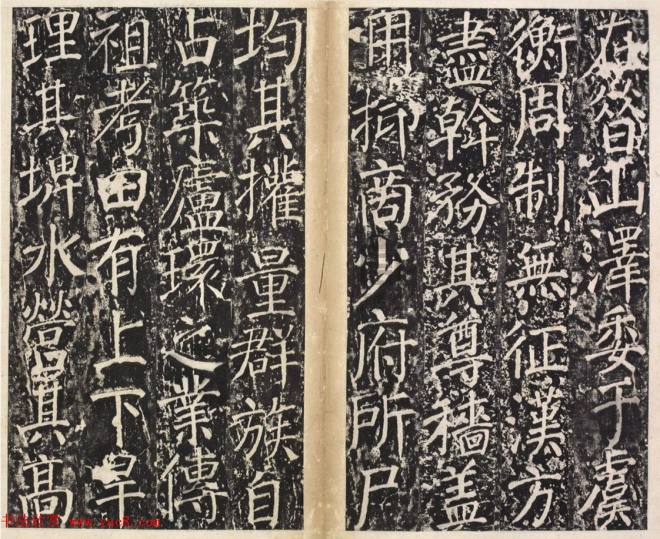 在昔山澤委于虞
衡周制無征漢方
盡幹務其尊穡蓋
用抑商少府所尸
均其擢量群族自
占築廬環之業傳
祖考田有上下旱
理其埤水營其高